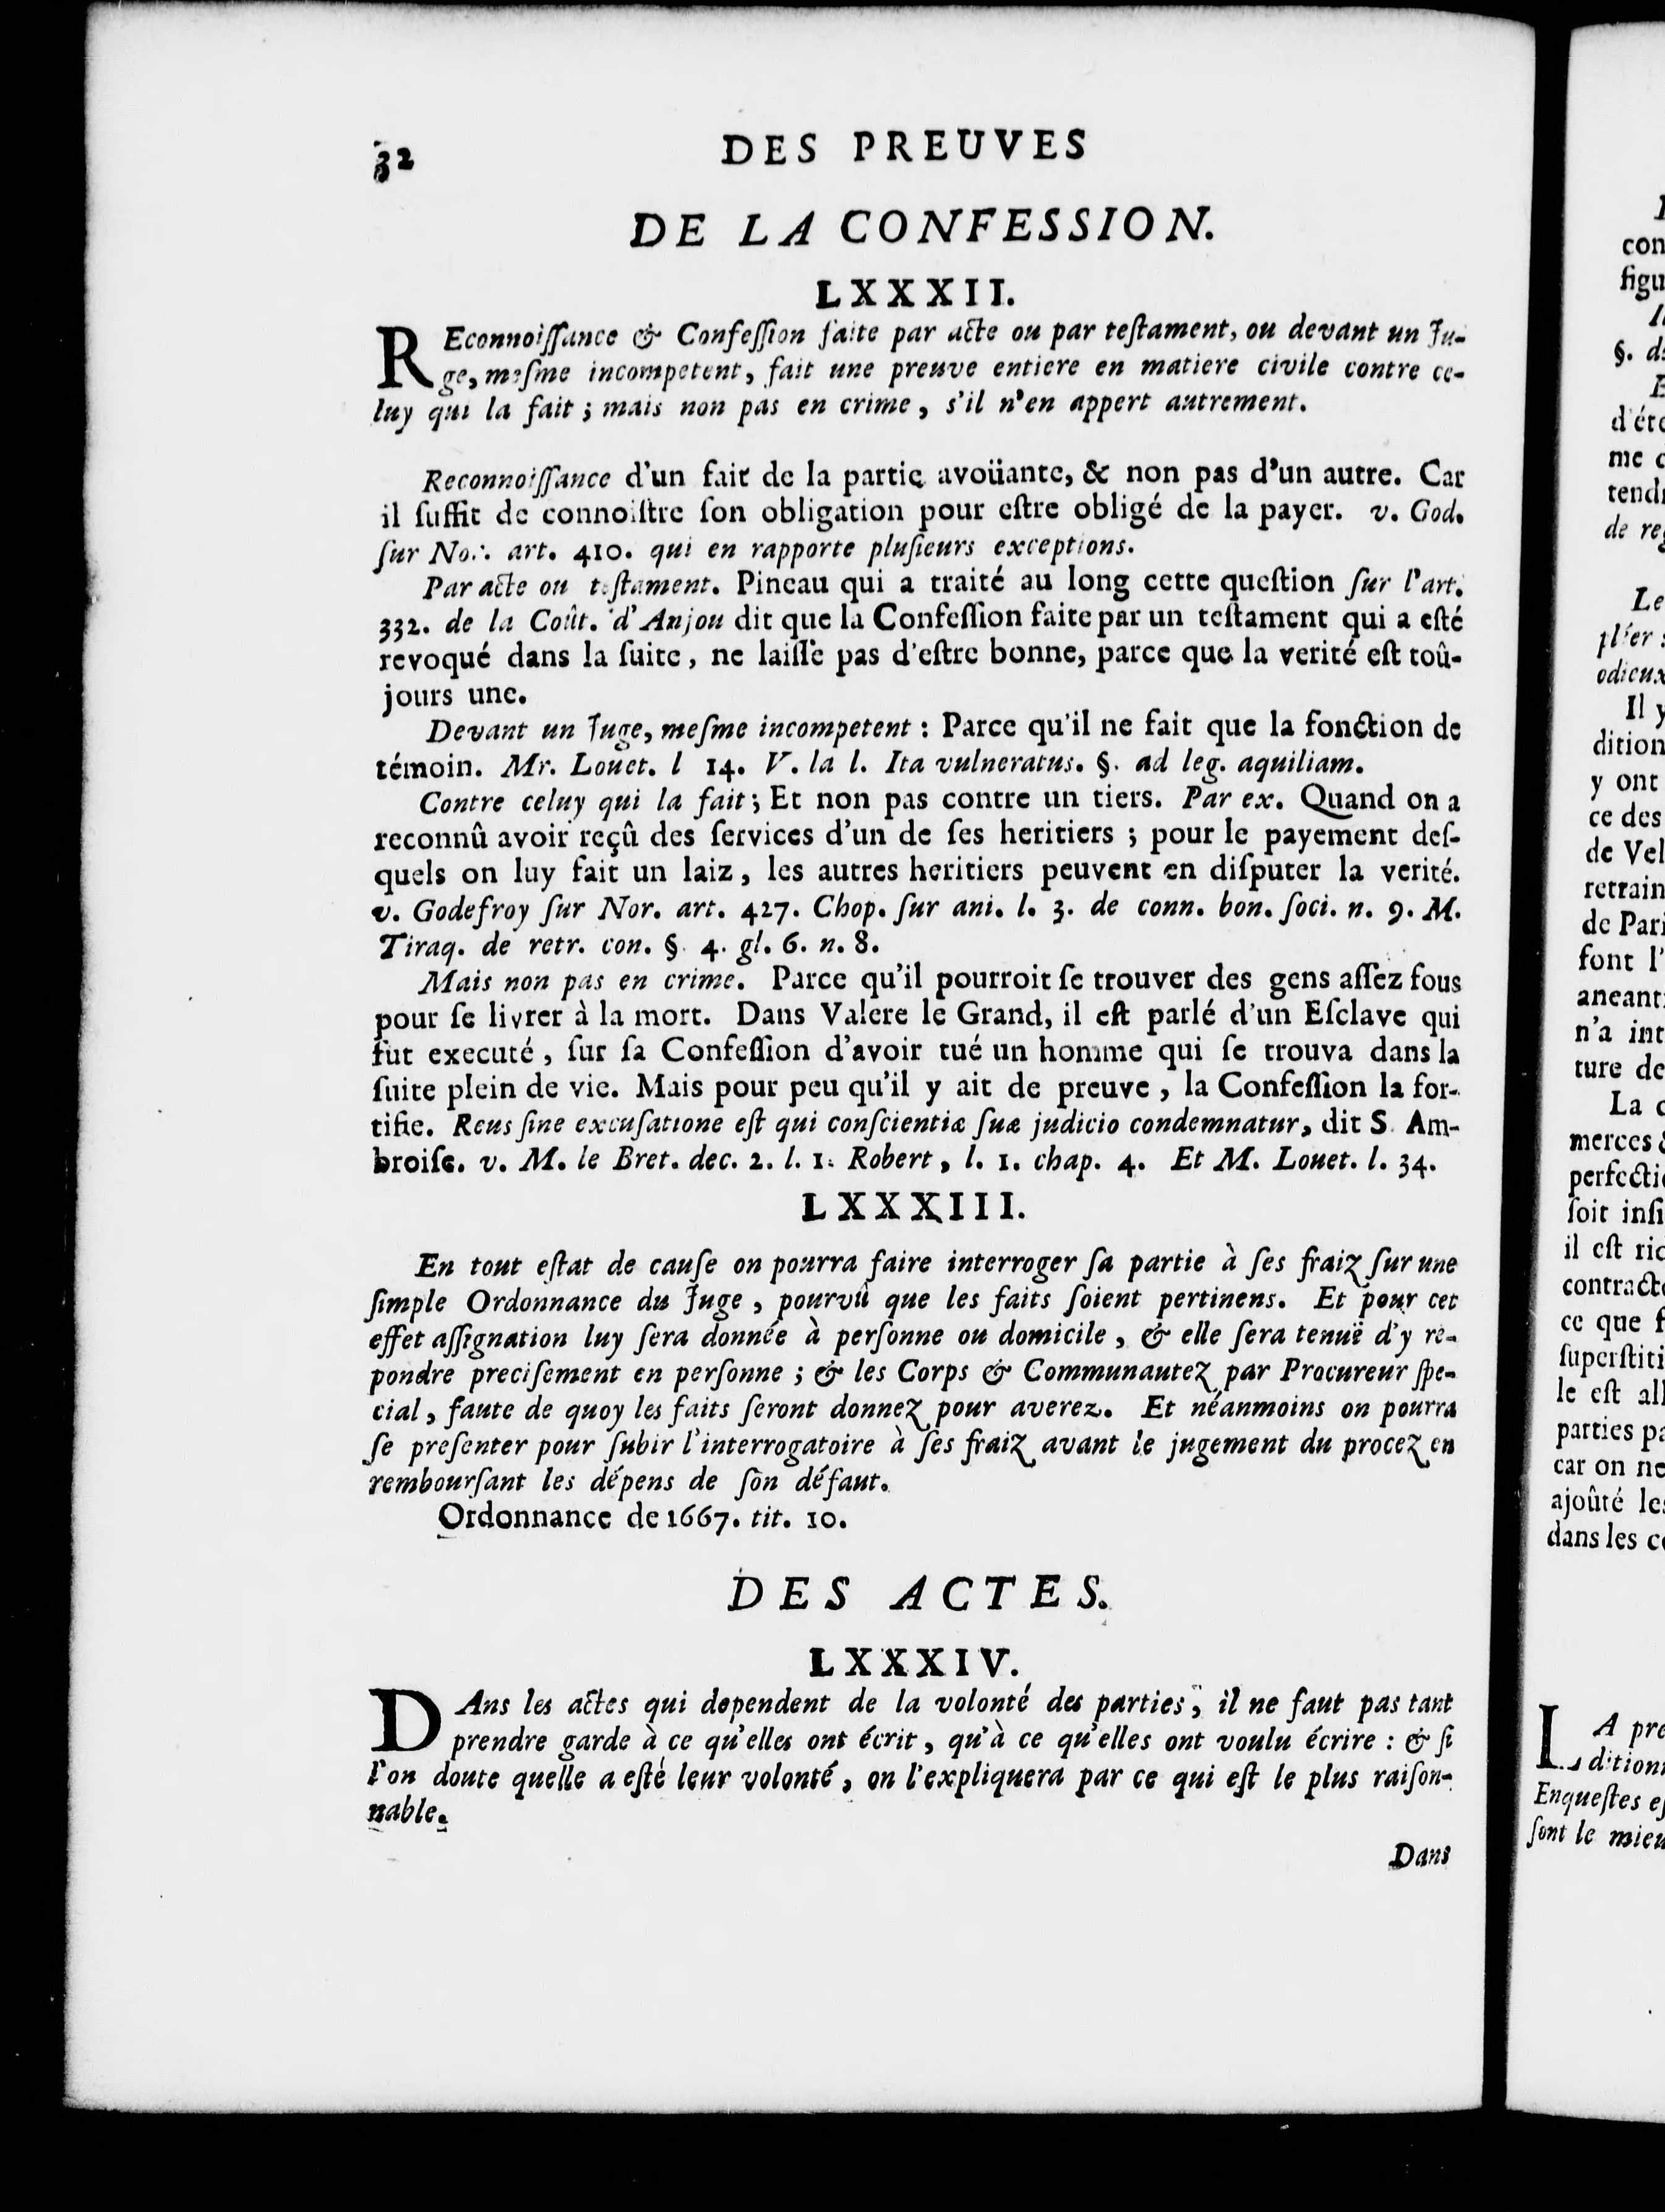 32 DES PREUVES
DE LA CONFESSION.
LXXXII.
REconnoiſſance & Confeſſion faite par acte ou par teſtament, ou devant un Ju-
ge, meſme incompetent, fait une preuve entiere en matiere civile contre ce-
luy qui la fait ; mais non pas en crime, s'il n'en appert autrement.
Reconnoiſſance d'un fait de la partie avoüante, & non pas d'un autre. Car
il ſuffit de connoiſtre ſon obligation pour eſtre obligé de la payer. v. God.
ſur No.. art. 410. qui en rapporte pluſieurs exceptions.
Par acte ou teſtament. Pineau qui a traité au long cette queſtion ſur l'art.
332. de la Coût. d'Anjou dit que la Confeſſion faite par un teſtament qui a eſté
revoqué dans la ſuite, ne laiſſe pas d'eſtre bonne, parce que la verité eſt toû-
jours une.
Devant un Juge, meſme incompetent : Parce qu'il ne fait que la fonction de
témoin. Mr. Louet. l 14. V. la l. Ita vulneratus. §. ad leg. aquiliam.
Contre celuy qui la fait ; Et non pas contre un tiers. Par ex. Quand on a
reconnû avoir reçû des ſervices d'un de ſes heritiers ; pour le payement deſ-
quels on luy fait un laiz, les autres heritiers peuvent en diſputer la verité.
v. Godefroy ſur Nor. art. 427. Chop. ſur ani. l. 3. de conn. bon. ſoci. n. 9. M.
Tiraq. de retr. con. §. 4. gl. 6. n. 8.
Mais non pas en crime. Parce qu'il pourroit ſe trouver des gens aſſez fous
pour ſe livrer à la mort. Dans Valere le Grand, il eſt parlé d'un Eſclave qui
fut executé, ſur ſa Confeſſion d'avoir tué un homme qui ſe trouva dans la
ſuite plein de vie. Mais pour peu qu'il y ait de preuve, la Confeſſion la for-
tifie. Reus ſine excuſatione eſt qui conſcientiæ ſuæ judicio condemnatur, dit S. Am-
broiſe. v. M. le Bret. dec. 2. l. 1. Robert, l. 1. chap. 4. Et M. Louet. l. 34.
LXXXIII.
En tout eſtat de cauſe on pourra faire interroger ſa partie à ſes fraiz ſur une
ſimple Ordonnance du Juge, pourvû que les faits ſoient pertinens. Et pour cet
effet aſſignation luy ſera donnée à perſonne ou domicile, & elle ſera tenuë d'y ré-
pondre preciſement en perſonne ; & les Corps & Communautez par Procureur ſpe-
cial, faute de quoy les faits ſeront donnez pour averez. Et néanmoins on pourra
ſe preſenter pour ſubir l'interrogatoire à ſes fraiz avant le jugement du procez en
rembourſant les dépens de ſon défaut.
Ordonnance de 1667. tit. 10.
DES ACTES.
LXXXIV.
DAns les actes qui dependent de la volonté des parties, il ne faut pas tant
prendre garde à ce qu'elles ont écrit, qu'à ce qu'elles ont voulu écrire : & ſi
l'on doute quelle a eſté leur volonté, on l'expliquera par ce qui eſt le plus raiſon-
nable.
Dans
con
figu
d'ét
me
tend
Le
Il y
dition
y ont
ce des
de Vel
retrain
de Pari
font l'
aneant
n'a int
ture de
La
merces
perfecti
ſoit inſi
il eſt ric
contract
ce que f
ſuperſtiti
le eſt all
parties pa
car on ne
ajoûté les
dans les c
LA pre
dition
Enqueſtes eſ
ſont le mieu